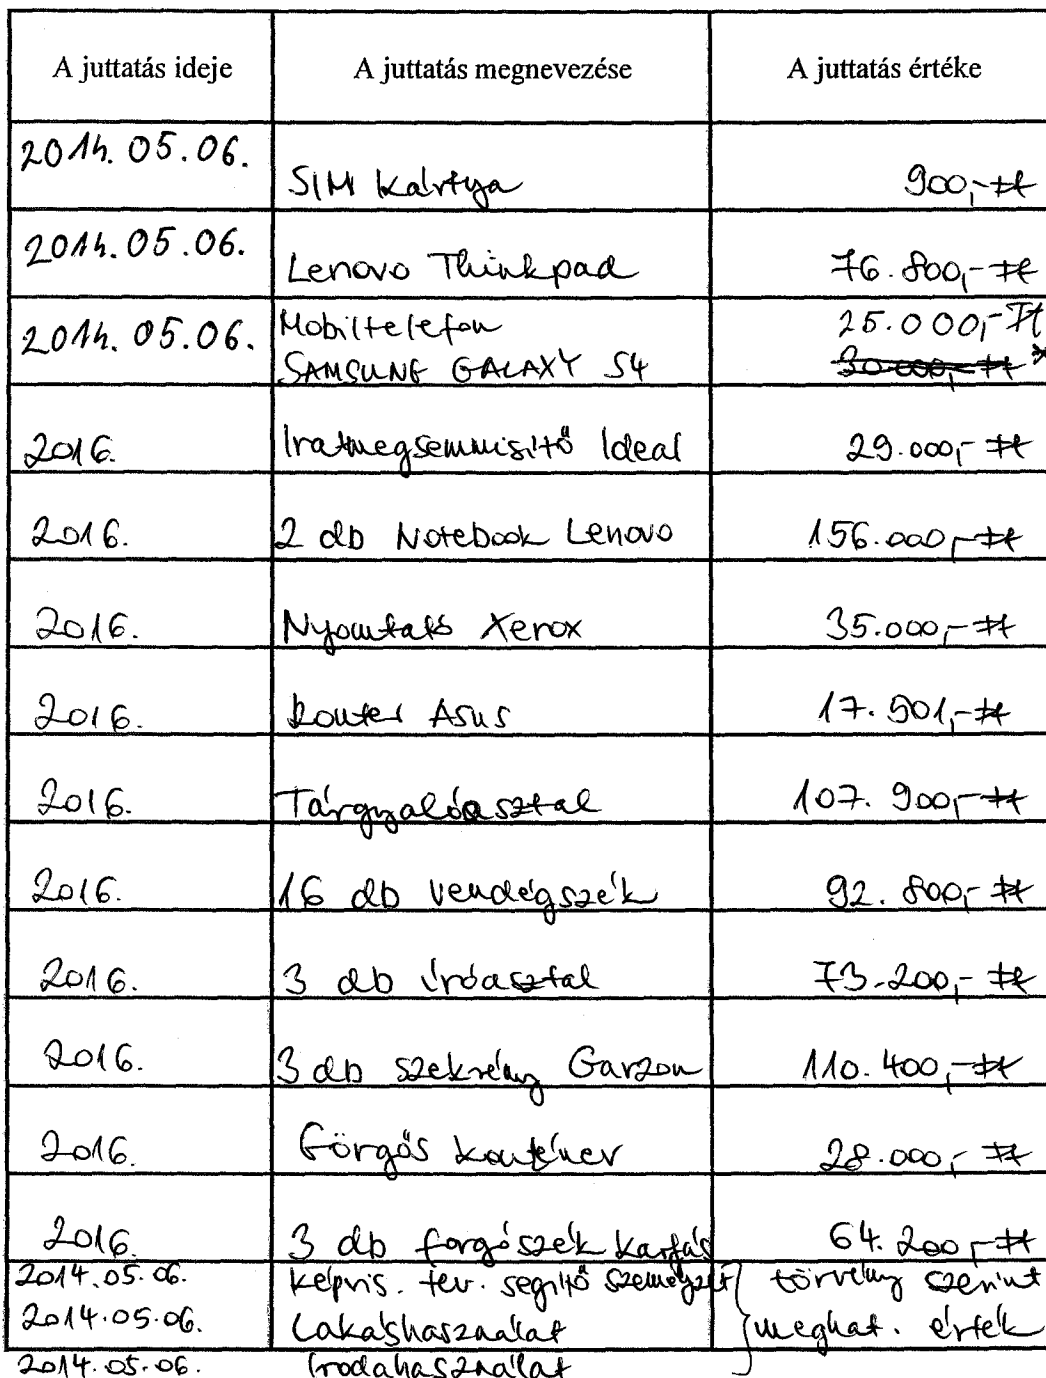 A juttatás ideje A juttatás megnevezése A juttatás értéke
2014. 05.06. SIM kártya 900,- Ft
2014. 05.06. Lenovo Thinkpad 76.800,- Ft
2014. 05.06. Mobiltelefon 25.000,- Ft
SAMSUNG GALAXY S4 30.000,- Ft *
2016. Iratmegsemmisítő Ideal 29.000,- Ft
2016. 2 db Notebook Lenovo 156.000,- Ft
2016. Nyomtató Xerox 35.000,- Ft
2016. Router Asus 17.901,- Ft
2016. Tárgyalóasztal 107.900,- Ft
2016. 16 db vendégszék 92.800,- Ft
2016. 3 db íróasztal 73.200,- Ft
2016. 3 db szekrény Garzon 110.400,- Ft
2016. Görgős konténer 28.000,- Ft
2016. 3 db forgószék karfás 64.200,- Ft
2014.05.06. képvis. tev. segítő személyzet törvény szerint
2014.05.06. Lakáshasználat meghat. érték
2014.05.06. Irodahasználat